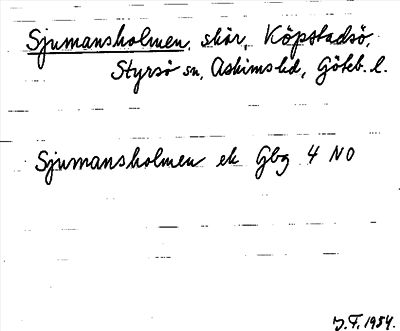 Sjumansholmen, skär, Köpstadsö,
Styrsö sn, Askims hd, Göteb. l.
Sjumansholmen ek Gbg 4 NO
J.F. 1934.